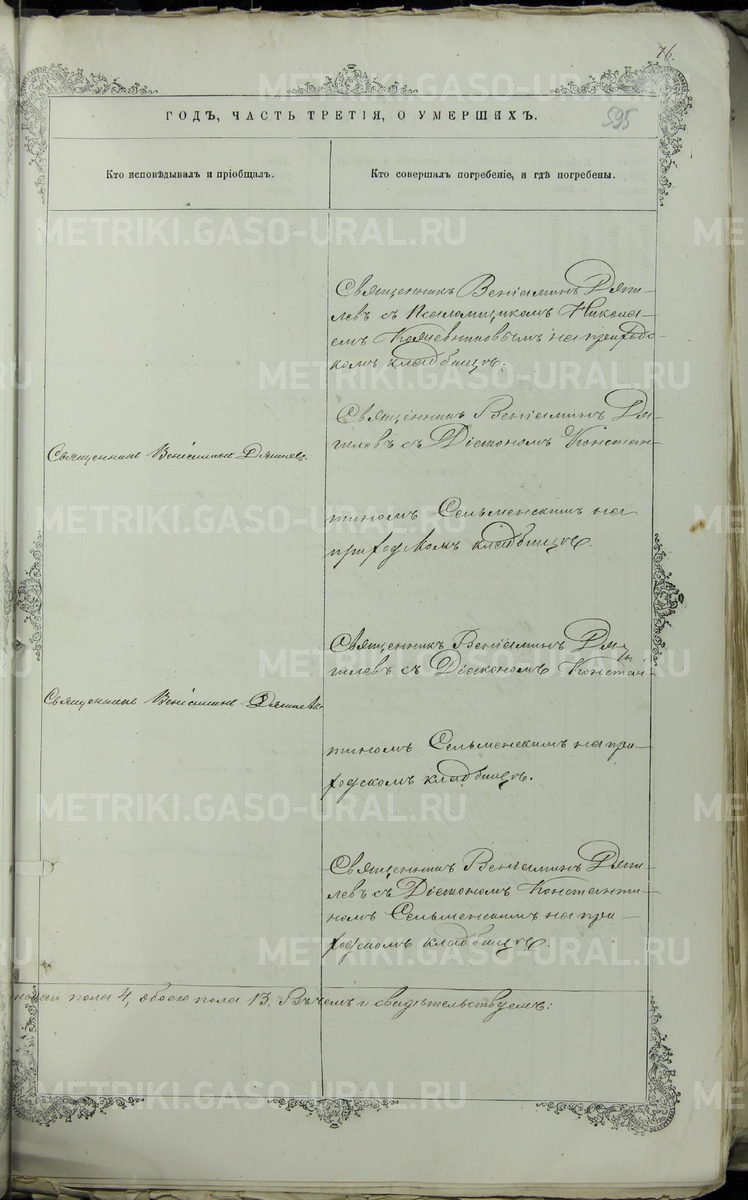 76.
ГОДЪ, ЧАСТЬ ТРЕТІЯ, О УМЕРШИХЪ.
595
Кто исповѣдывалъ и пріобщалъ.
Кто совершалъ погребеніе, и гдѣ погребены.
Священникъ Веніаминъ Дяги-
левъ съ Псаломщикомъ Никола-
емъ на приходс-
комъ кладбищѣ.
Священникъ Веніаминъ Дя-
гилевъ съ Діакономъ Констан-
Священникъ Веніаминъ Дягилевъ.
тиномъ Сельменскимъ на
приходскомъ кладбищѣ.
Священникъ Веніаминъ Дя-
гилевъ съ Діакономъ Констан-
Священникъ Веніаминъ Дягилевъ
тиномъ Сельменскимъ на при-
ходскомъ кладбищѣ.
Священникъ Веніаминъ Дяги-
левъ съ Діакономъ Константи-
номъ Сельменскимъ на при-
ходскомъ кладбищѣ.
пола 4, обоего пола 13. Въ чемъ и свидѣтельствуемъ:
METRIKI.GASO-URAL.RU